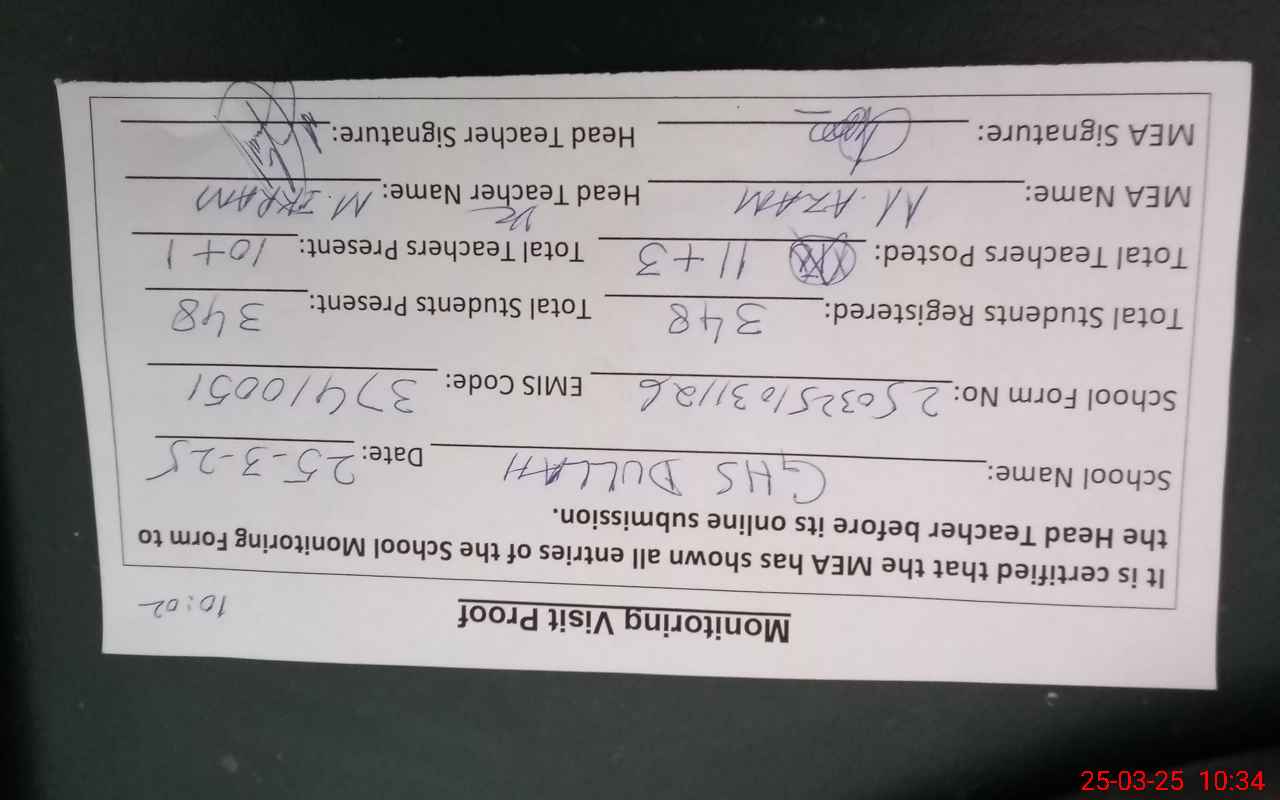 Monitoring Visit Proof
10:02
It is certified that the MEA has shown all entries of the School Monitoring Form to
the Head Teacher before its online submission.
School Name: GHS DULLAH Date: 25-3-25
School Form No: 2503251031126 EMIS Code: 37410051
Total Students Registered: 348 Total Students Present: 348
Total Teachers Posted: 11+3 Total Teachers Present: 10+1
MEA Name: M. AZAM Head Teacher Name: M. IKRAM
MEA Signature: Head Teacher Signature:
25-03-25 10:34